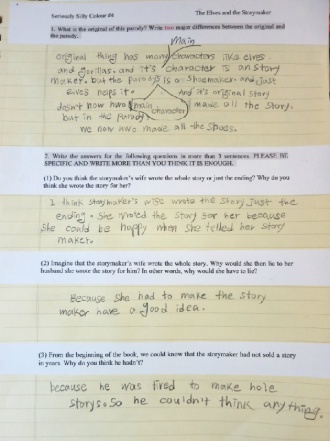 Seriously Silly Colour #4 The Elves and the Storymaker
1. What is the original of this parody? Write two major differences between the original and
the parody.
Main
original thing has many characters like elves
and gorillas. and it's character is an story
maker. but the parody is a shoemaker and just
elves helps it. And it's original story
doesn't now hwo main character made all the story.
but in the parody
we now hwo made all the shoes.
2. Write the answers for the following questions in more than 3 sentences. PLEASE BE
SPECIFIC AND WRITE MORE THAN YOU THINK IT IS ENOUGH.
(1) Do you think the storymaker's wife wrote the whole story or just the ending? Why do you
think she wrote the story for her?
I think storymaker's wife wrote the story just the
ending. She wroted the story for her because
she could be happy when she telled her story
maker.
(2) Imagine that the storymaker's wife wrote the whole story. Why would she then lie to her
husband she wrote the story for him? In other words, why would she have to lie?
Because she had to make the story
maker have a good idea.
(3) From the beginning of the book, we could know that the storymaker had not sold a story
in years. Why do you think he hadn't?
because he was tired to make hole
storys. So he couldn't think anything.